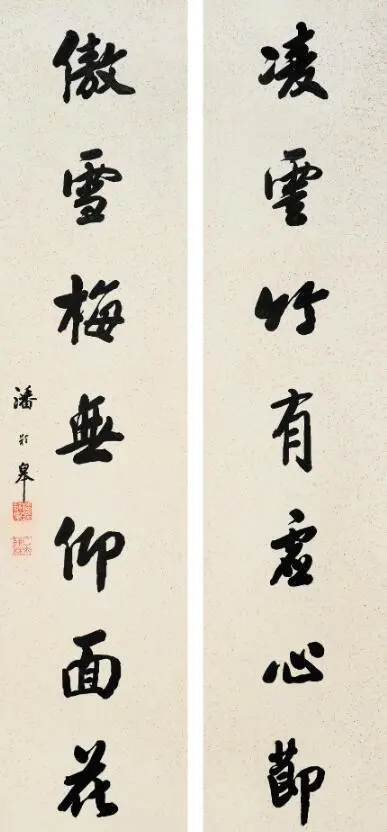 凌雲竹有虛心節
傲雪梅無仰面花
潘齡皋